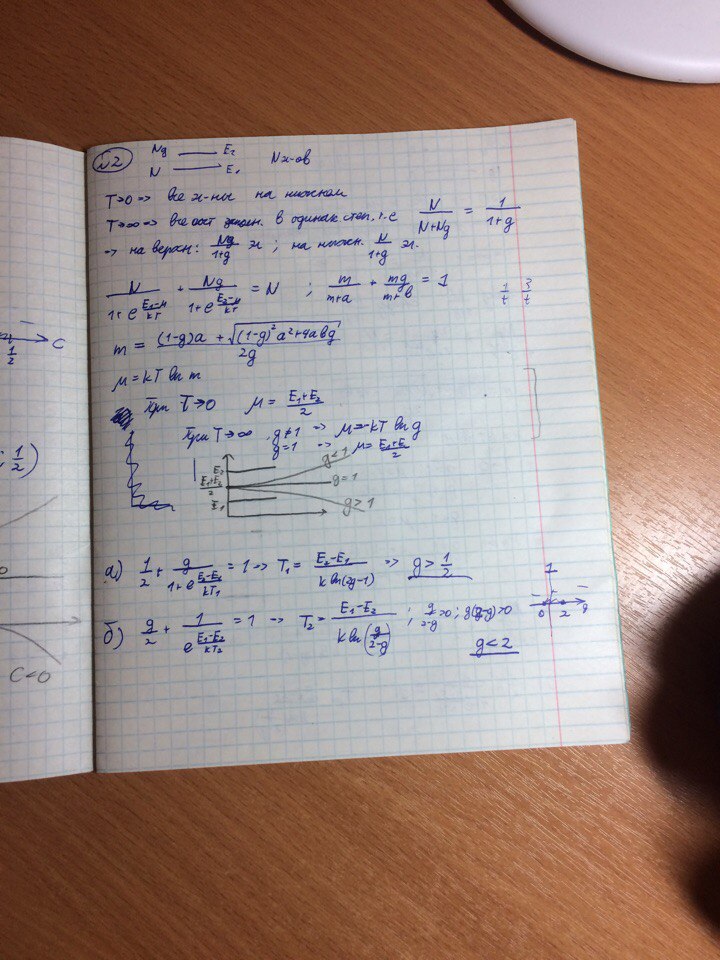 N2 Ng — E₂ N x-ов
N — E₁
T→0 => все x-ны на нижнем
T→∞ => все в одинак. степ., т.е. N/(N+Ng) = 1/(1+g)
-> на верхн: Ng/(1+g) x ; на нижн. N/(1+g) x.
N/(1+e^((E₁-μ)/kT)) + Ng/(1+e^((E₂-μ)/kT)) = N ; m/(m+a) + mg/(m+b) = 1
1/t 3/t
m = ((1-g)a + √((1-g)²a²+4abg))/2g
μ = kT ln m
При T→0 μ = (E₁+E₂)/2
При T→∞, g≠1 -> μ=-kT ln g
g=1 -> μ=(E₁+E₂)/2
E₂ g<1
(E₁+E₂)/2 g=1
E₁ g>1
а) 1/2 + g/(1+e^((E₂-E₁)/kT₁)) = 1 -> T₁ = (E₂-E₁)/(k ln(2g-1)) => g > 1/2
б) g/2 + 1/e^((E₁-E₂)/kT₂) = 1 -> T₂ = (E₁-E₂)/(k ln(g/(2-g))) ; g/(2-g)>0 ; g(2-g)>0
g<2
- + -
0 2 g
C
1/2
; 1/2)
C<0